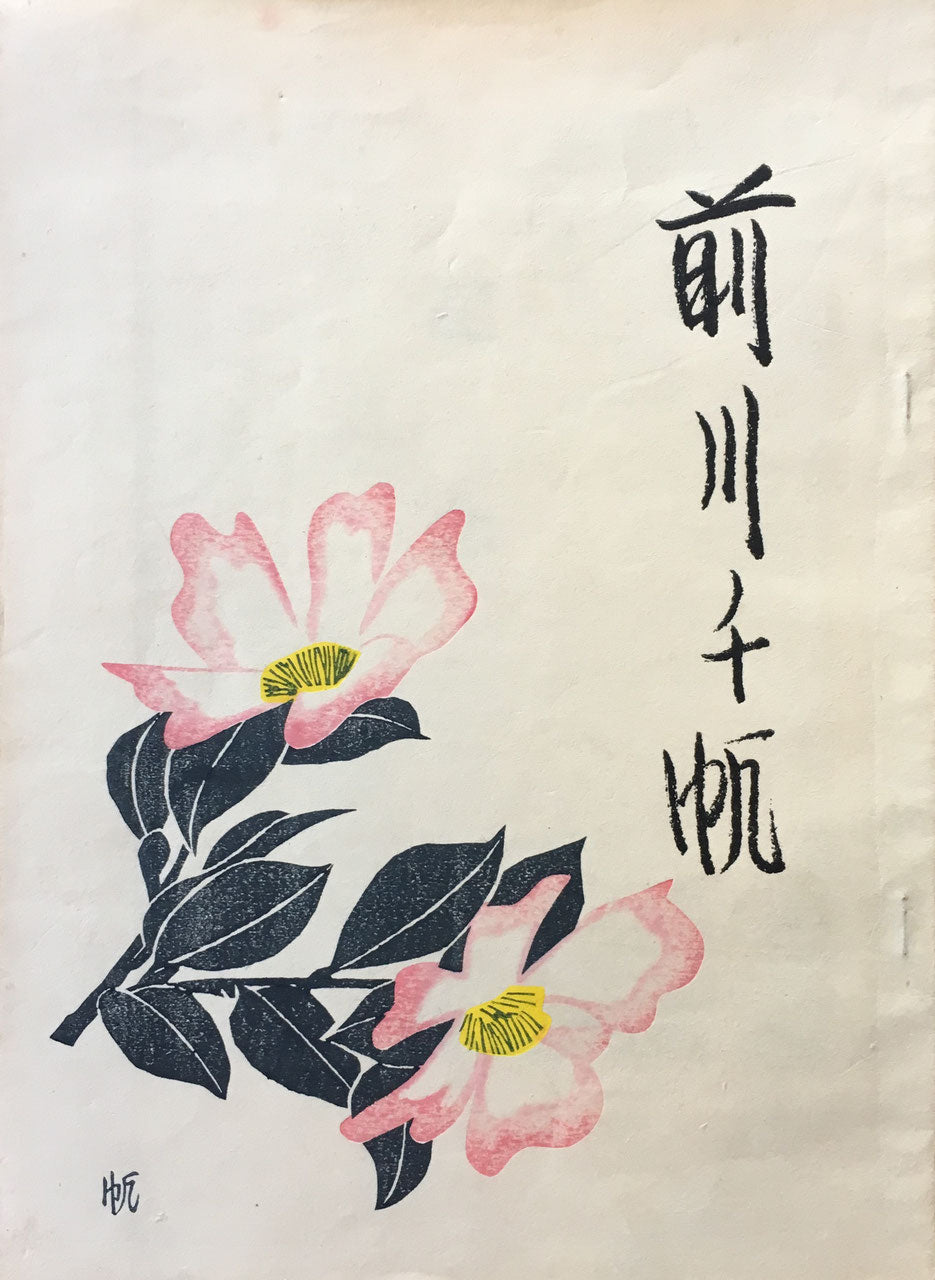 前川千帆
帆